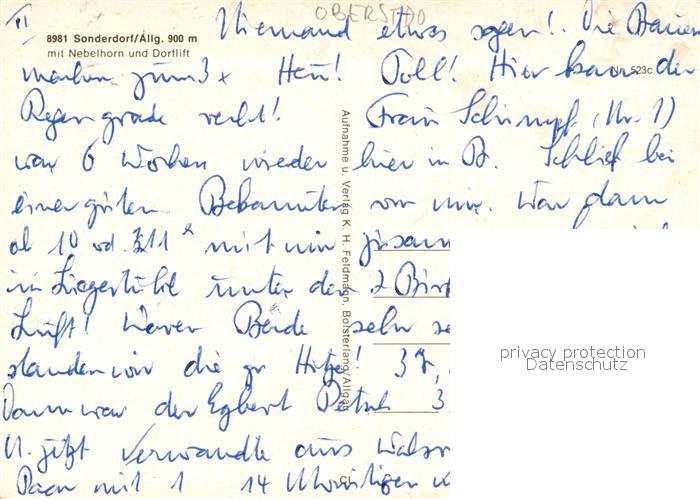 II
OBERSTDO
Niemand etwas sagen! Die Bauern
8981 Sonderdorf/Allg. 900 m
mit Nebelhorn und Dorflift
machen zum 3x Heu! Toll! Hier kam der
Nr. 523c
Regen grade recht! Frau Schimpf (Nr. 1)
war 6 Wochen wieder hier in B. Schlief bei
einer guten Bekannten von mir. War dann
ab 10 od. 11 mit mir zusam
im Liegestuhl unter den 2 Bir
Luft! Waren Beide sehr
standen wir die gr Hitze! 3
Dann war der Egbert 3
U. jetzt Verwandte aus
Paar mit 1 14
Aufnahme u. Verlag K. H. Feldmann, Bolsterlang/Allgäu
privacy protection
Datenschutz